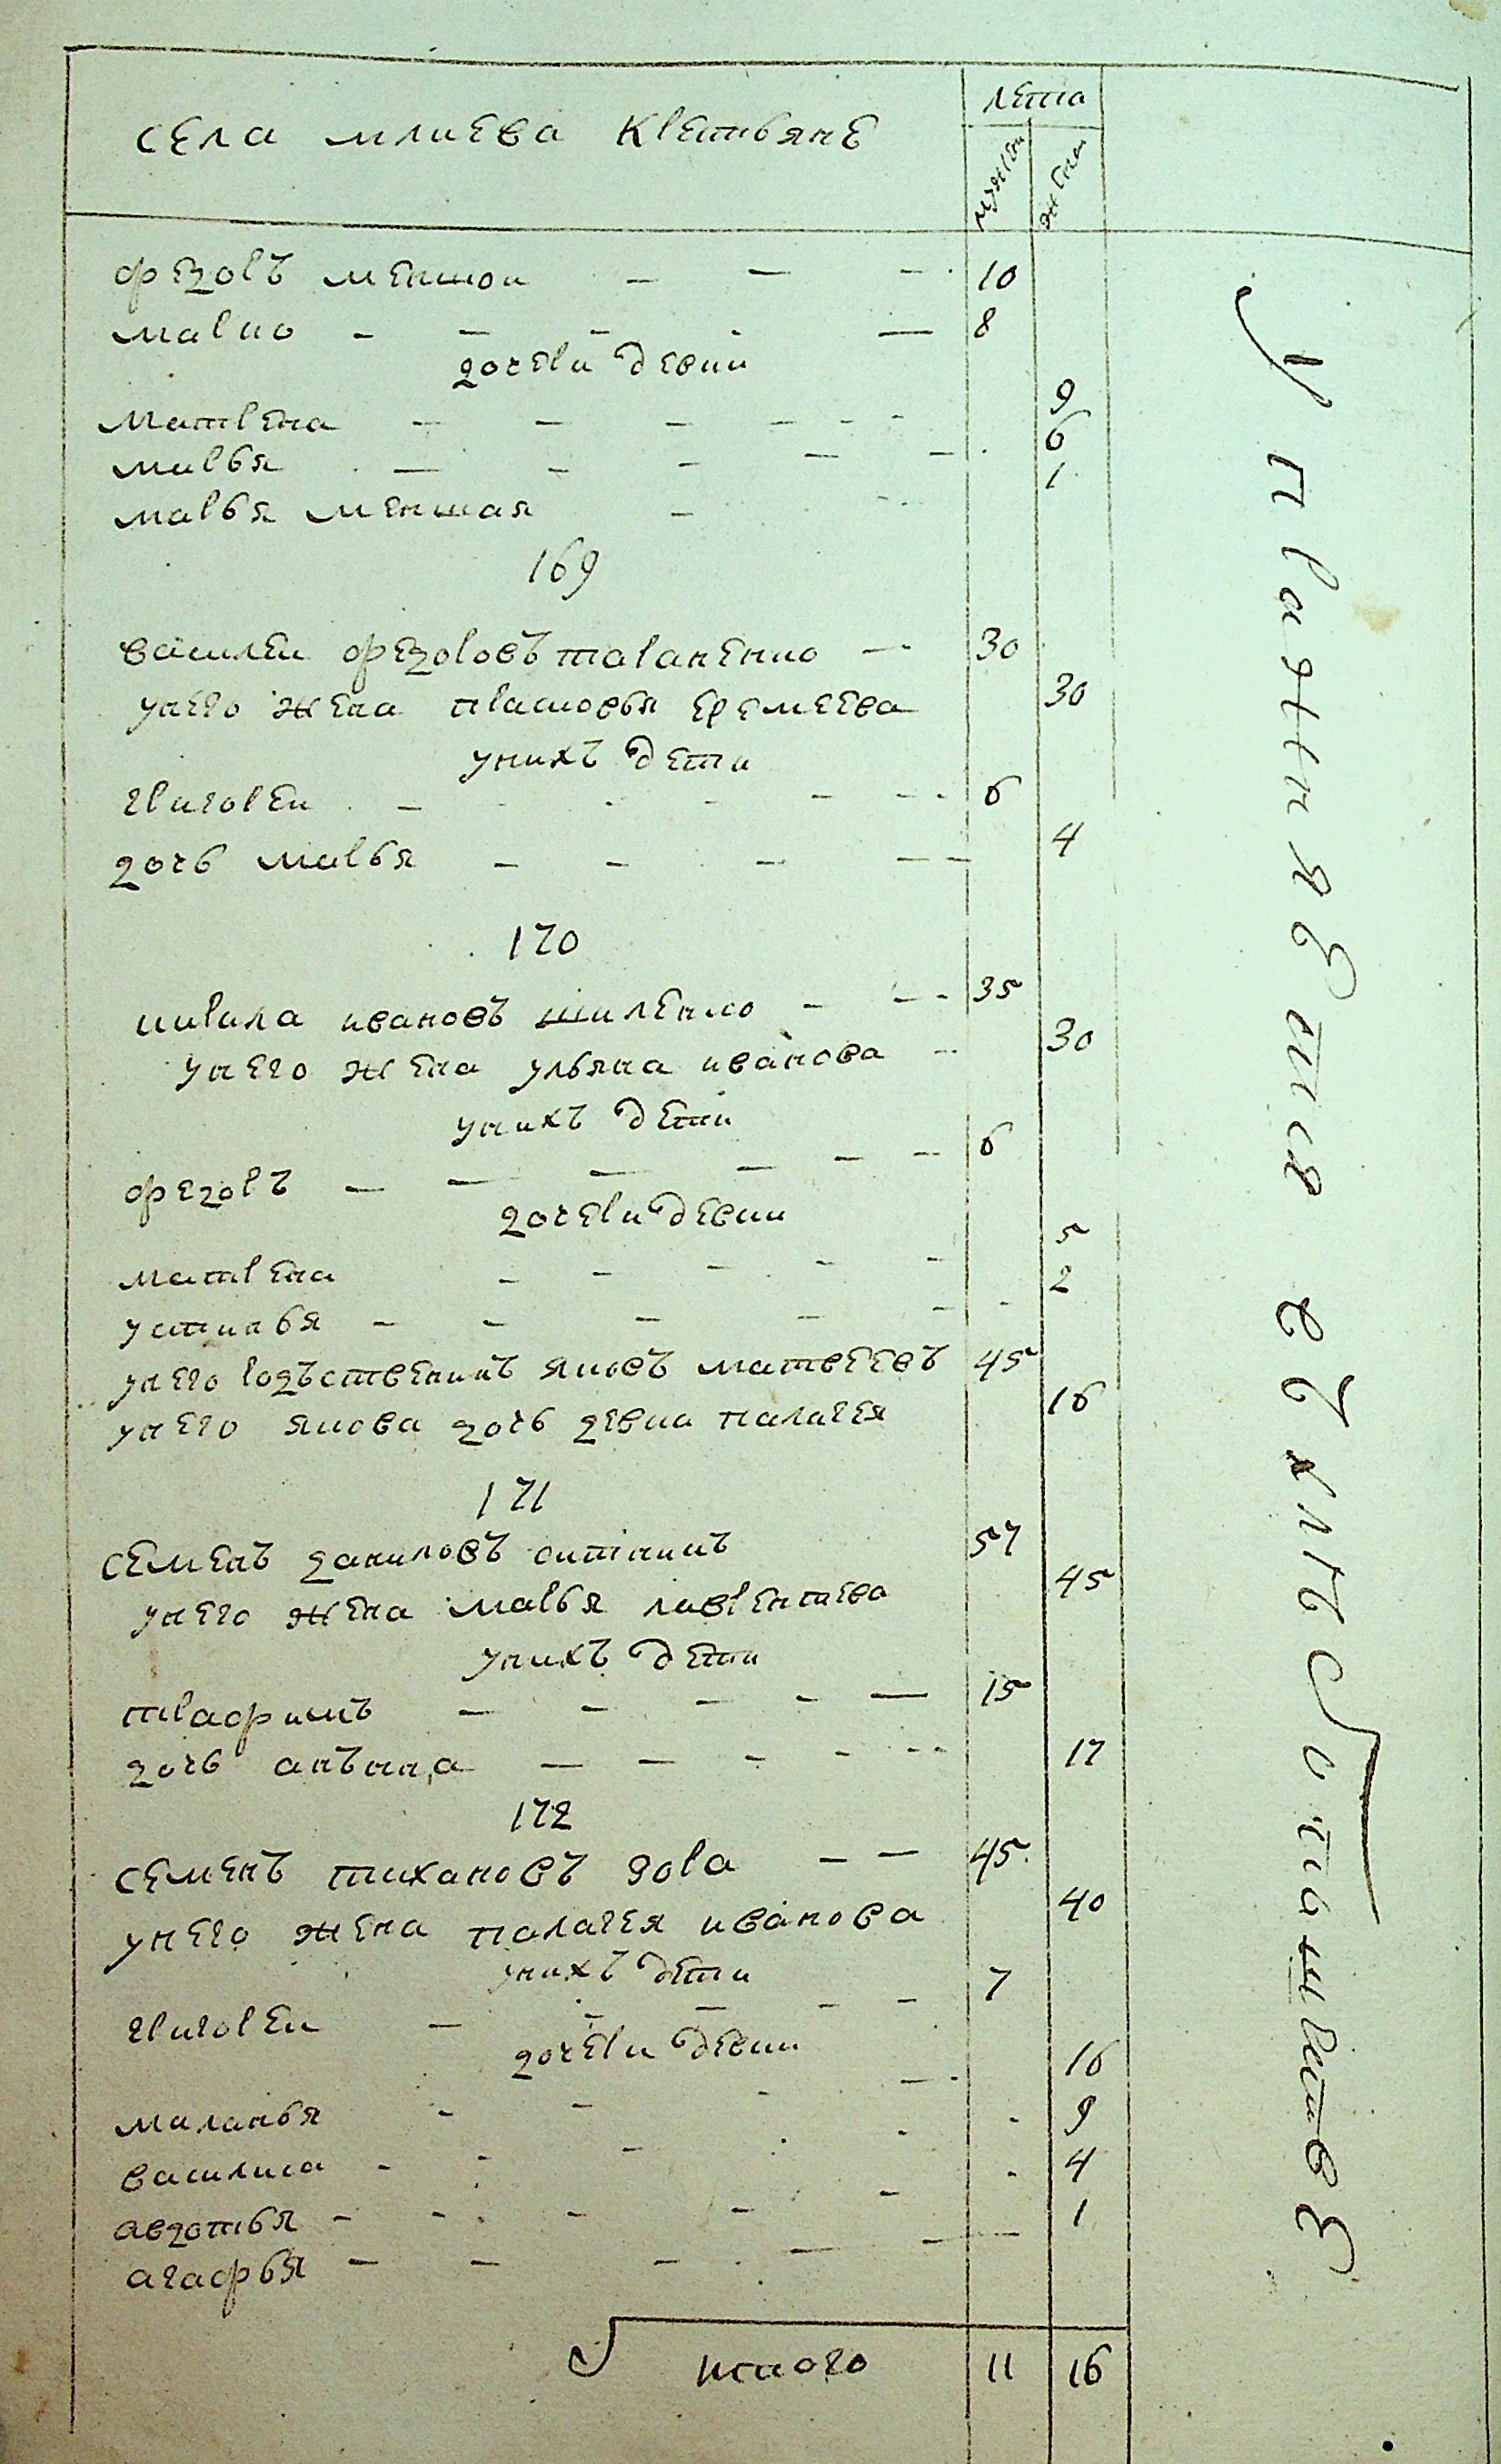 села млиева крестьяне
лета
мужска
женска
федоръ меншои 10
марко 8
дочери девки
матрена 9
марья 6
марья меншая 1
169
василеи федоровъ тараненко 30
унего жена прасковья еремеева 30
унихъ дети
григореи 6
дочь марья 4
170
кирила ивановъ шиленко 35
унего жена ульяна иванова 30
унихъ дети
федоръ 6
дочери девки
матрена 5
устинья 2
унего родъственикъ яковъ матвеевъ 45
унего якова дочь девка палагея 16
171
семенъ даниловъ 57
унего жена марья лаврентиева 45
унихъ дети
трафимъ 15
дочь анънна 17
172
семенъ тихановъ зора 45
унего жена палагея иванова 40
унихъ дети
григореи 7
дочери девки
маланья 16
василиса 9
авдотья 4
агафья 1
итого 11 16
упражняется въ